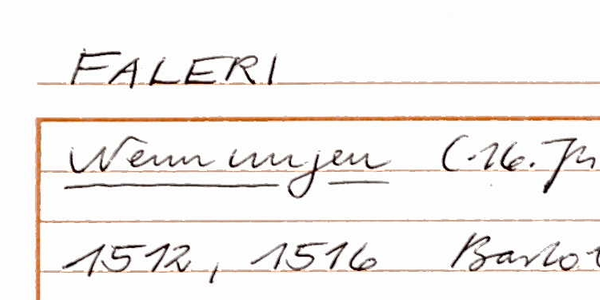 FALERI
Nennungen (16. Jh
1512, 1516 Barlot